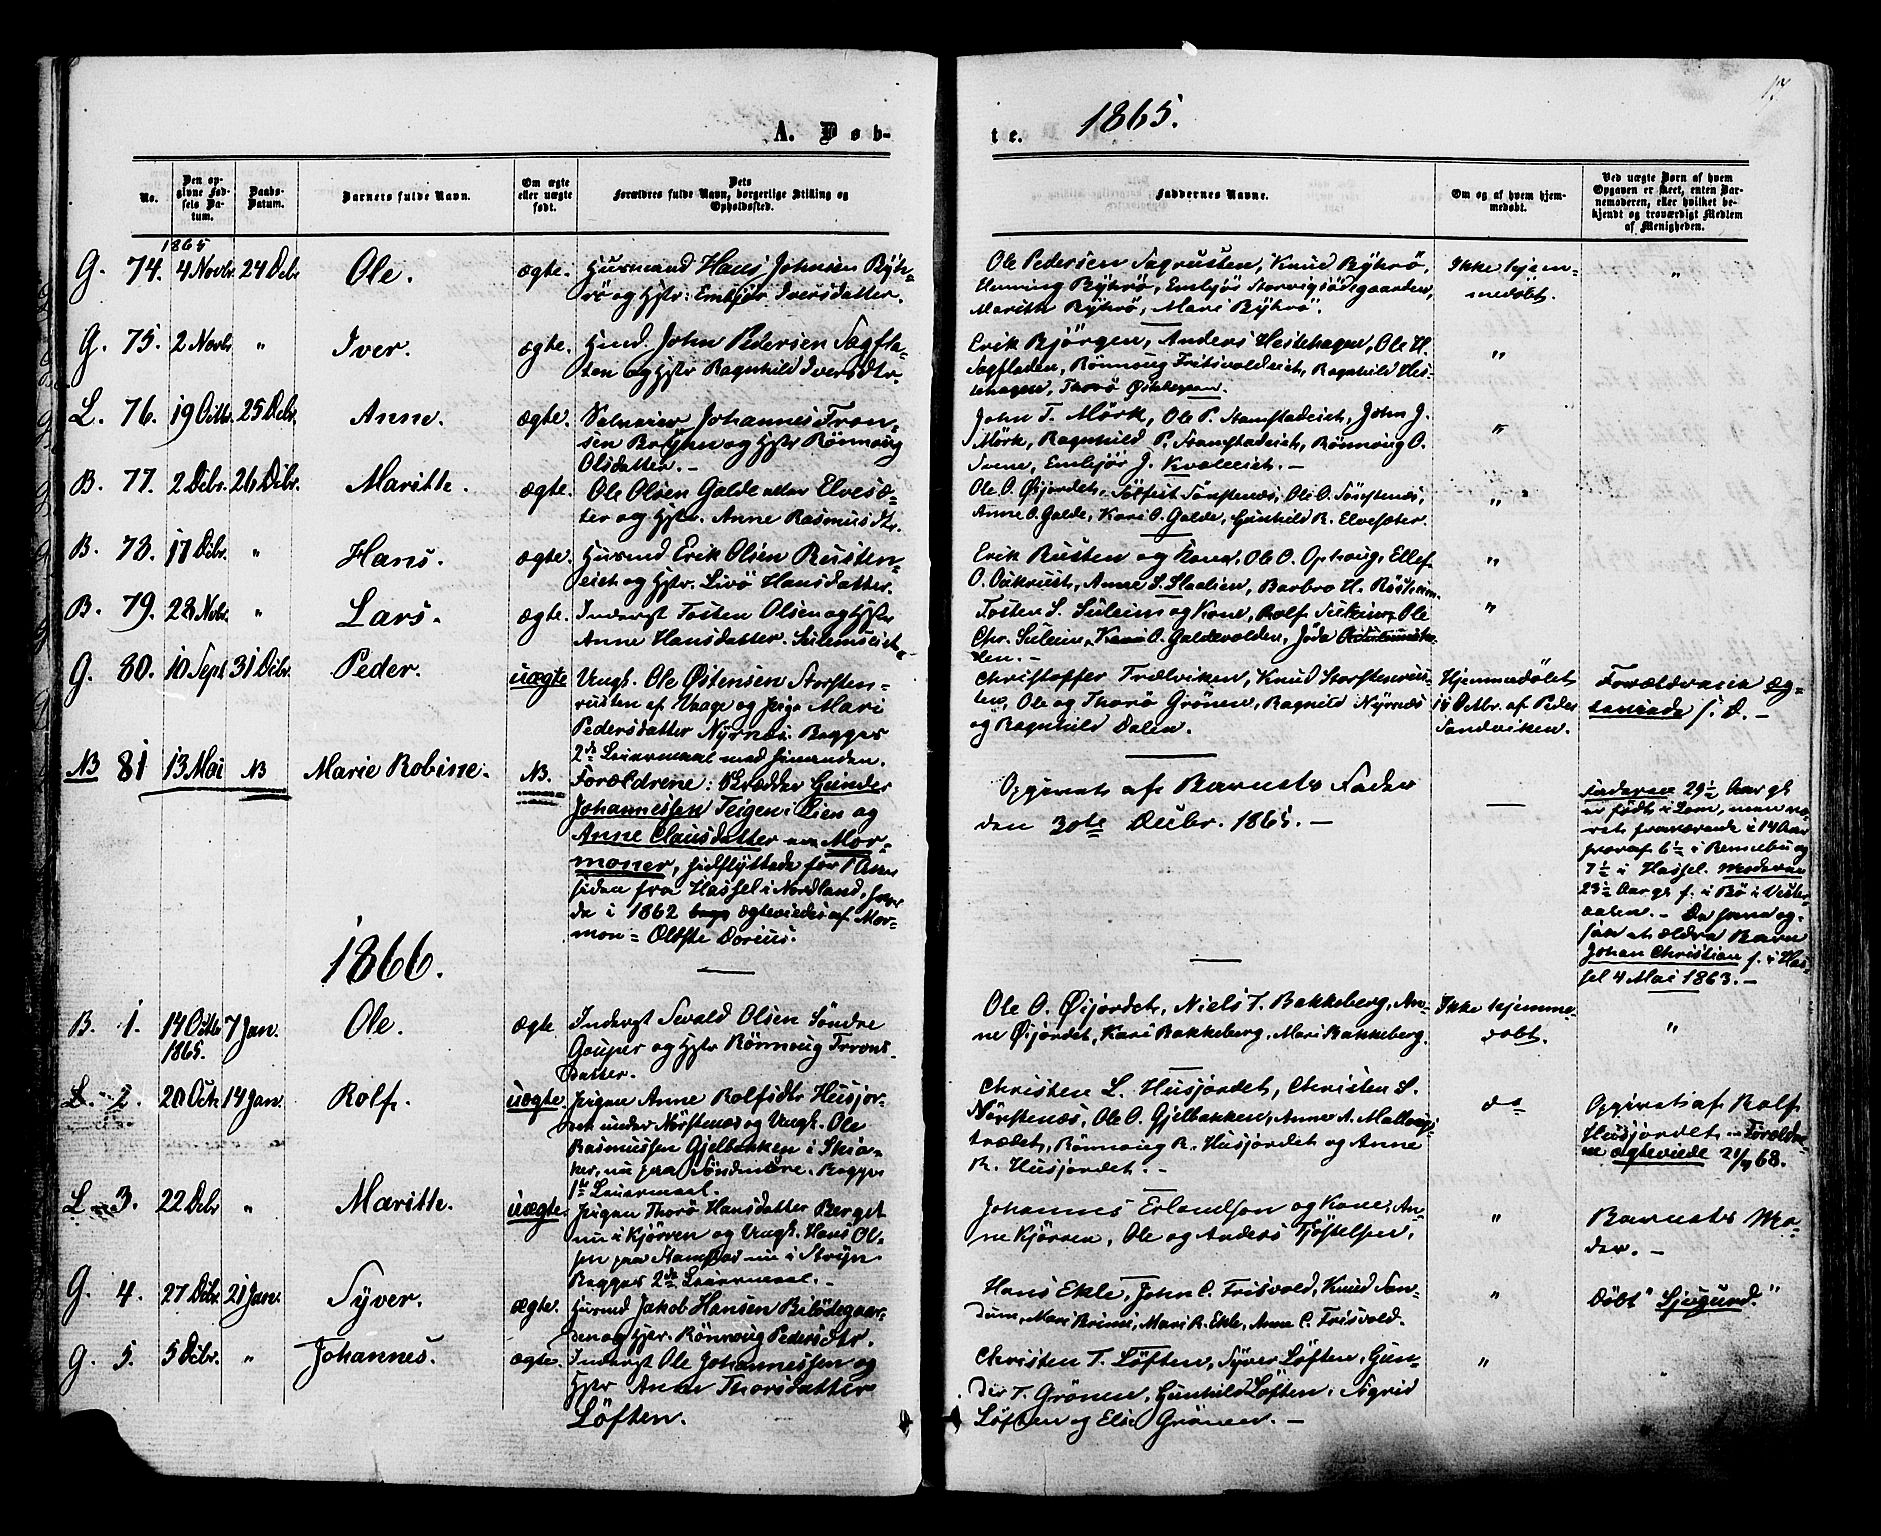 17
A. Døb-
te.
1865.
No.
Den opgivne Fødsels Datum.
Daabs-Datum.
Barnets fulde Navn.
Om ægte eller uægte født.
Dets Forældres fulde Navn, borgerlige Stilling og Opholdssted.
Faddernes Navne.
Om og af hvem hjemmedøbt.
Ved uægte Børn af hvem Opgaven er skeet, enten Barnemoderen, eller hvilket bekjendt og troværdigt Medlem af Menigheden.
1865
G. 74. 4 Novbr. 24 Debr. Ole. ægte. Husmand Hans Johnsen Byk-
rø og Hstr: Embjør Iversdatter.
Ole Pedersen Sagrusten, Knud Bykrø,
Henning Bykrø, Embjør Storvigsødegaarden,
Marith Bykrø, Mari Bykrø.
Ikke hjem-
medøbt.
"
G. 75. 2 Novbr. " Iver. ægte. Hmd. John Pedersen Sagfla-
ten og Hstr Ragnhild Iversdtr.
Erik Bjørgen, Anders Hestehagen, Ole H.
Sagfladen, Rønnoug Frisvoldeiet, Ragnhild Hes-
tehagen, Thorø
"
L. 76. 19 Octbr. 25 Debr. Anne. ægte. Johannes Tron-
sen og Hstr Rønnoug
Olsdatter. -
John T. Mörk, Ole P. Stamstadeiet, John J.
Mörk, Ragnhild P. Stamstadeiet, Rønnoug O.
Svene, Embjør J. Kvaleeiet. -
"
B. 77. 2 Debr. 26 Debr. Maritte. ægte. Ole Olsen Galde eller Elvesæ-
ter og Hstr. Anne Rasmusdtr.
Ole O. Øijordet, Sønstenæs, Ole O. Sønstenæs,
Anne O. Galde, Kari O. Galde, Gunhild R. Elvesæter.
"
B. 78. 17 Debr. " Hans. ægte. Husmd Erik Olsen Rusten-
eiet og Hstr. Livø Hansdatter.
Erik Rusten og Kone, Ole O. Ellef
O. Anne S. Slaalien, Barbro H. Røisheim.
"
B. 79. 28 Novbr. " Lars. ægte. Inderst Tosten Olsen og Hstr
Anne Hansdatter. Suleimseiet.
Tosten S. Suleim og Kone, Rolf Suleim, Ole
Chr. Suleim, Kari O. Galdevolden,
den. -
"
G. 80. 10 Sept. 31 Debr. Peder. uægte Ungk. Ole Østensen Storsten-
rusten af Vaage og Pige Mari
Pedersdatter Nyrnæs. Begges
2de Leiermaal med hinanden.
Christoffer Trælviken, Knud Storstenrus-
ten, Ole og Thorø Grönen, Ragnild Nyrnæs
og Ragnhild Dalen.
Hjemmedøbt
14 Octbr. af Peder
Sandviken.
Forældrene æg-
s. D. -
NB 81 13 Mai NB Marie Robine. NB. Forældrene: Skrædder Gunder
Johannessen Teigen i Lien og
Anne Clausdatter ere Mor-
moner, hidflyttede for 1 Aar
siden fra Hassel i Nordland, hvor
de i 1862 bleve ægteviede af Mor-
mon = Ældste Dorius.
Opgivet af Barnets Fader
den 30te Decbr. 1865. -
Faderne 29½ Aar gl
er født i Lom, men va-
ret fraværende i 14 Aar
hvoraf 6½ i Rennebu og
7½ i Hassel. Moderne
23½ Aar gl f. i Bø i Vester-
aalen. - De have og-
saa et ældre Barn
Johan Christian f. i Has-
sel 4 Mai 1863. -
1866.
B. 1. 14 Octbr 1865. 7 Jan. Ole. ægte Inderst Sevald Olsen Søndre
Gouper og Hstr Rønnoug Trons-
datter.
Ole O. Øijordet, Niels T. Bakkeberg, An-
ne Øijordet, Kari Bakkeberg, Mari Bakkeberg.
Ikke hjemme-
døbt.
"
L. 2. 20 Oct. 14 Jan. Rolf. uægte Pigen Anne Rolfsdtr Husjor-
det under Nørstenæs og Ungk. Ole
Rasmussen Gjelbakken i Skia-
ker, nu paa Søndmøre. Begges
1ste Leiermaal.
Christen L. Husjordet, Christen S.
Nørstenæs, Ole O. Gjelbakken, Anne A.
Rønnoug R. Husjordet og Anne
R. Husjordet. -
do
Opgivet af Rolf
Husjordet. - Forældre-
ne ægteviede 68.
L. 3. 22 Debr " Maritte. uægte. Pigen Thorø Hansdatter Berget
nu i Kjørren og Ungk. Hans Ol-
sen paa Stamstad nu i Stryn.
Begges 2de Leiermaal. -
Johannes Erlandsen og Kone, An-
ne Kjørren, Ole og Anders Tjøstelsen.
"
Barnets Mo-
der. -
G. 4. 27 Debr. 21 Jan. Syver. ægte. Husmd Jakob Hansen Bilødegaar-
den og Hstr. Rønnoug Pedersdtr.
Hans Ekle, John C. Frisvold, Knud San-
dum, Mari Brimi, Mari R. Ekle, Anne C. Frisvold.
"
Døbt "Sjugurd."
G. 5. 5 Debr. " Johannes. ægte. Inderst Ole Johannessen og
Hstr Anne Thorsdatter
Løften.
Christen T. Løften, Syver Løften, Gun-
der T. Grönen, Gunhild Løften, Sigrid
Løften og Elie Grönen. -
"